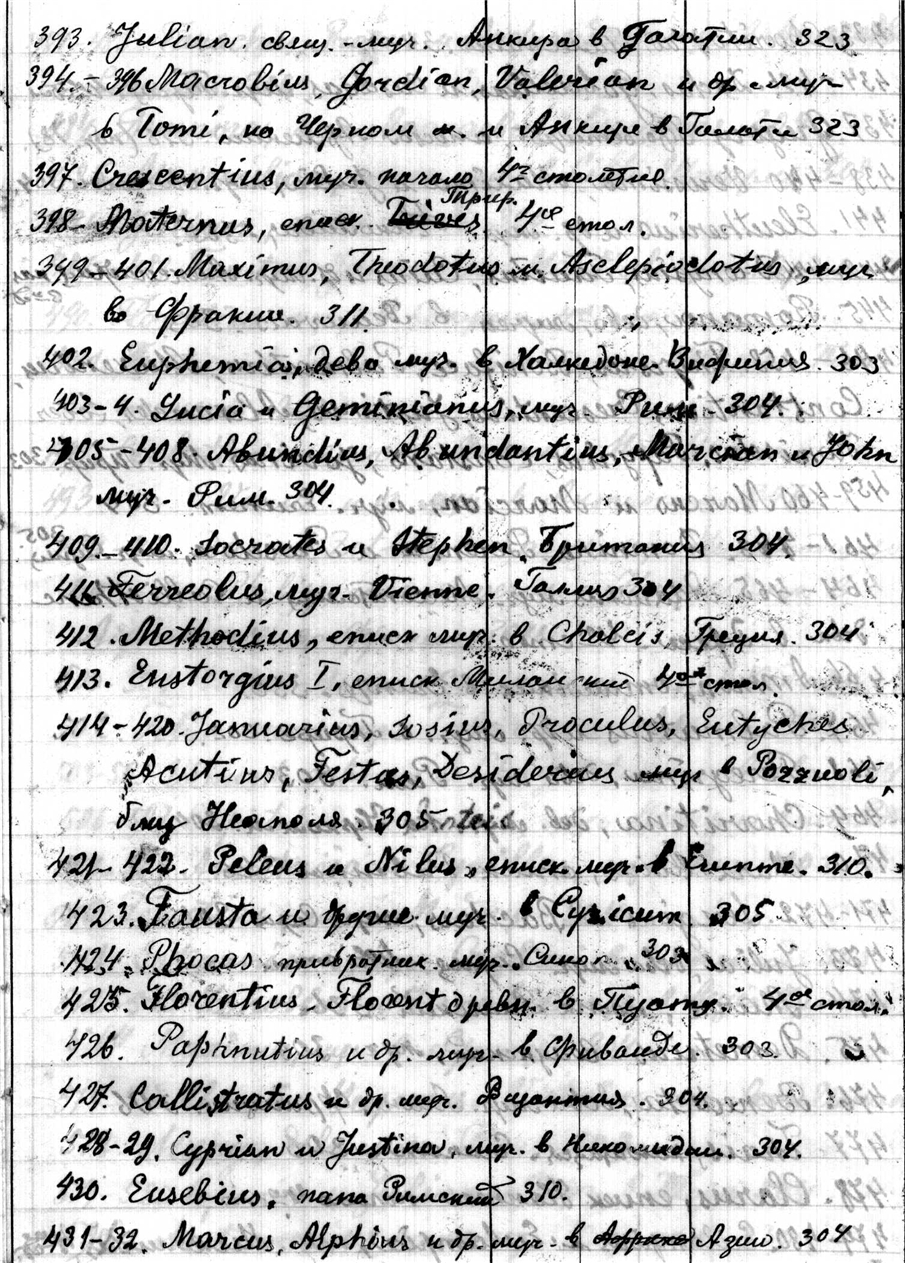 393. Julian. свящ.-муч. Анкира в Галатии. 323
394.-396 Macrobius, Gordian, Valerian и др муч
в Tomi, на Черном м. и Анкире в Галатии 323
397. Crescentius, муч. начало 4го столетия.
398- Maternus, еписк. Трир. 4ое стол.
399-401. Maximus, Theodotus и Asclepiodotus, муч
во Фракии. 311.
402. Euphemia, дева муч. в Халкедоне. Вифиния. 303
403-4. Lucia и Geminianus, муч. Рим - 304.
405-408. Abundius, Abundantius, Marcian и John
муч. Рим. 304.
409-410. Socrates и Stephen. Британия 304
411 Ferreolus, муч. Vienne. Галлия 304
412. Methodius, еписк муч. в Chalcis, Греция. 304
413. Eustorgius I, еписк Миланский 4ое стол.
414-420. Januarius, Sosius, Proculus, Eutyches
Acutius, Festus, Desiderius муч в Pozzuoli,
близ Неаполя. 305
421-422. Peleus и Nilus, еписк. муч. в Египте. 310.
423. Fausta и другие муч. в Cyzicum 305
424. Phocas привратник муч. Синоп. 303
425. Florentius - Florent древн. в Пуату. 4ое стол.
426. Paphnutius и др. муч. в 303.
427. Callistratus и др. муч. Византия. 304.
428-29. Cyprian и Justina, муч. в Никомидии. 304.
430. Eusebius, папа Римский 310.
431-32. Marcus, Alphius и др. муч. в Африке Азии. 304